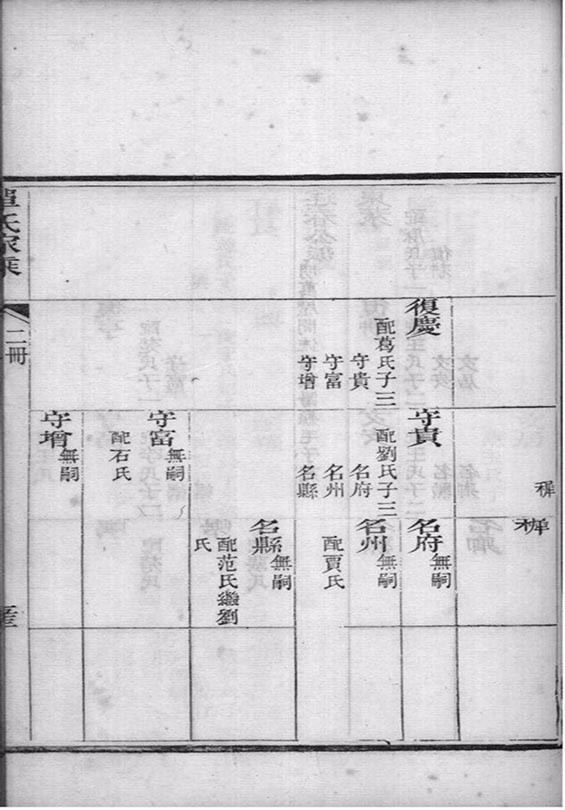 穉
穉
復慶
配葛氏子三
守貴
守富
守增
守貴
配劉氏子三
名府
名州
名縣
名府
無嗣
名州
無嗣
配賈氏
名縣
無嗣
配范氏繼劉
氏
守富
無嗣
配石氏
守增
無嗣
氏家乘
二冊